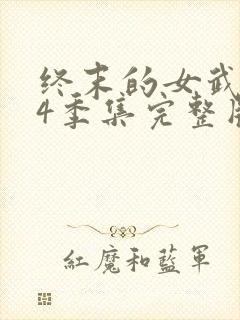 终末的女武
4季集完整版
紅魔和藍軍